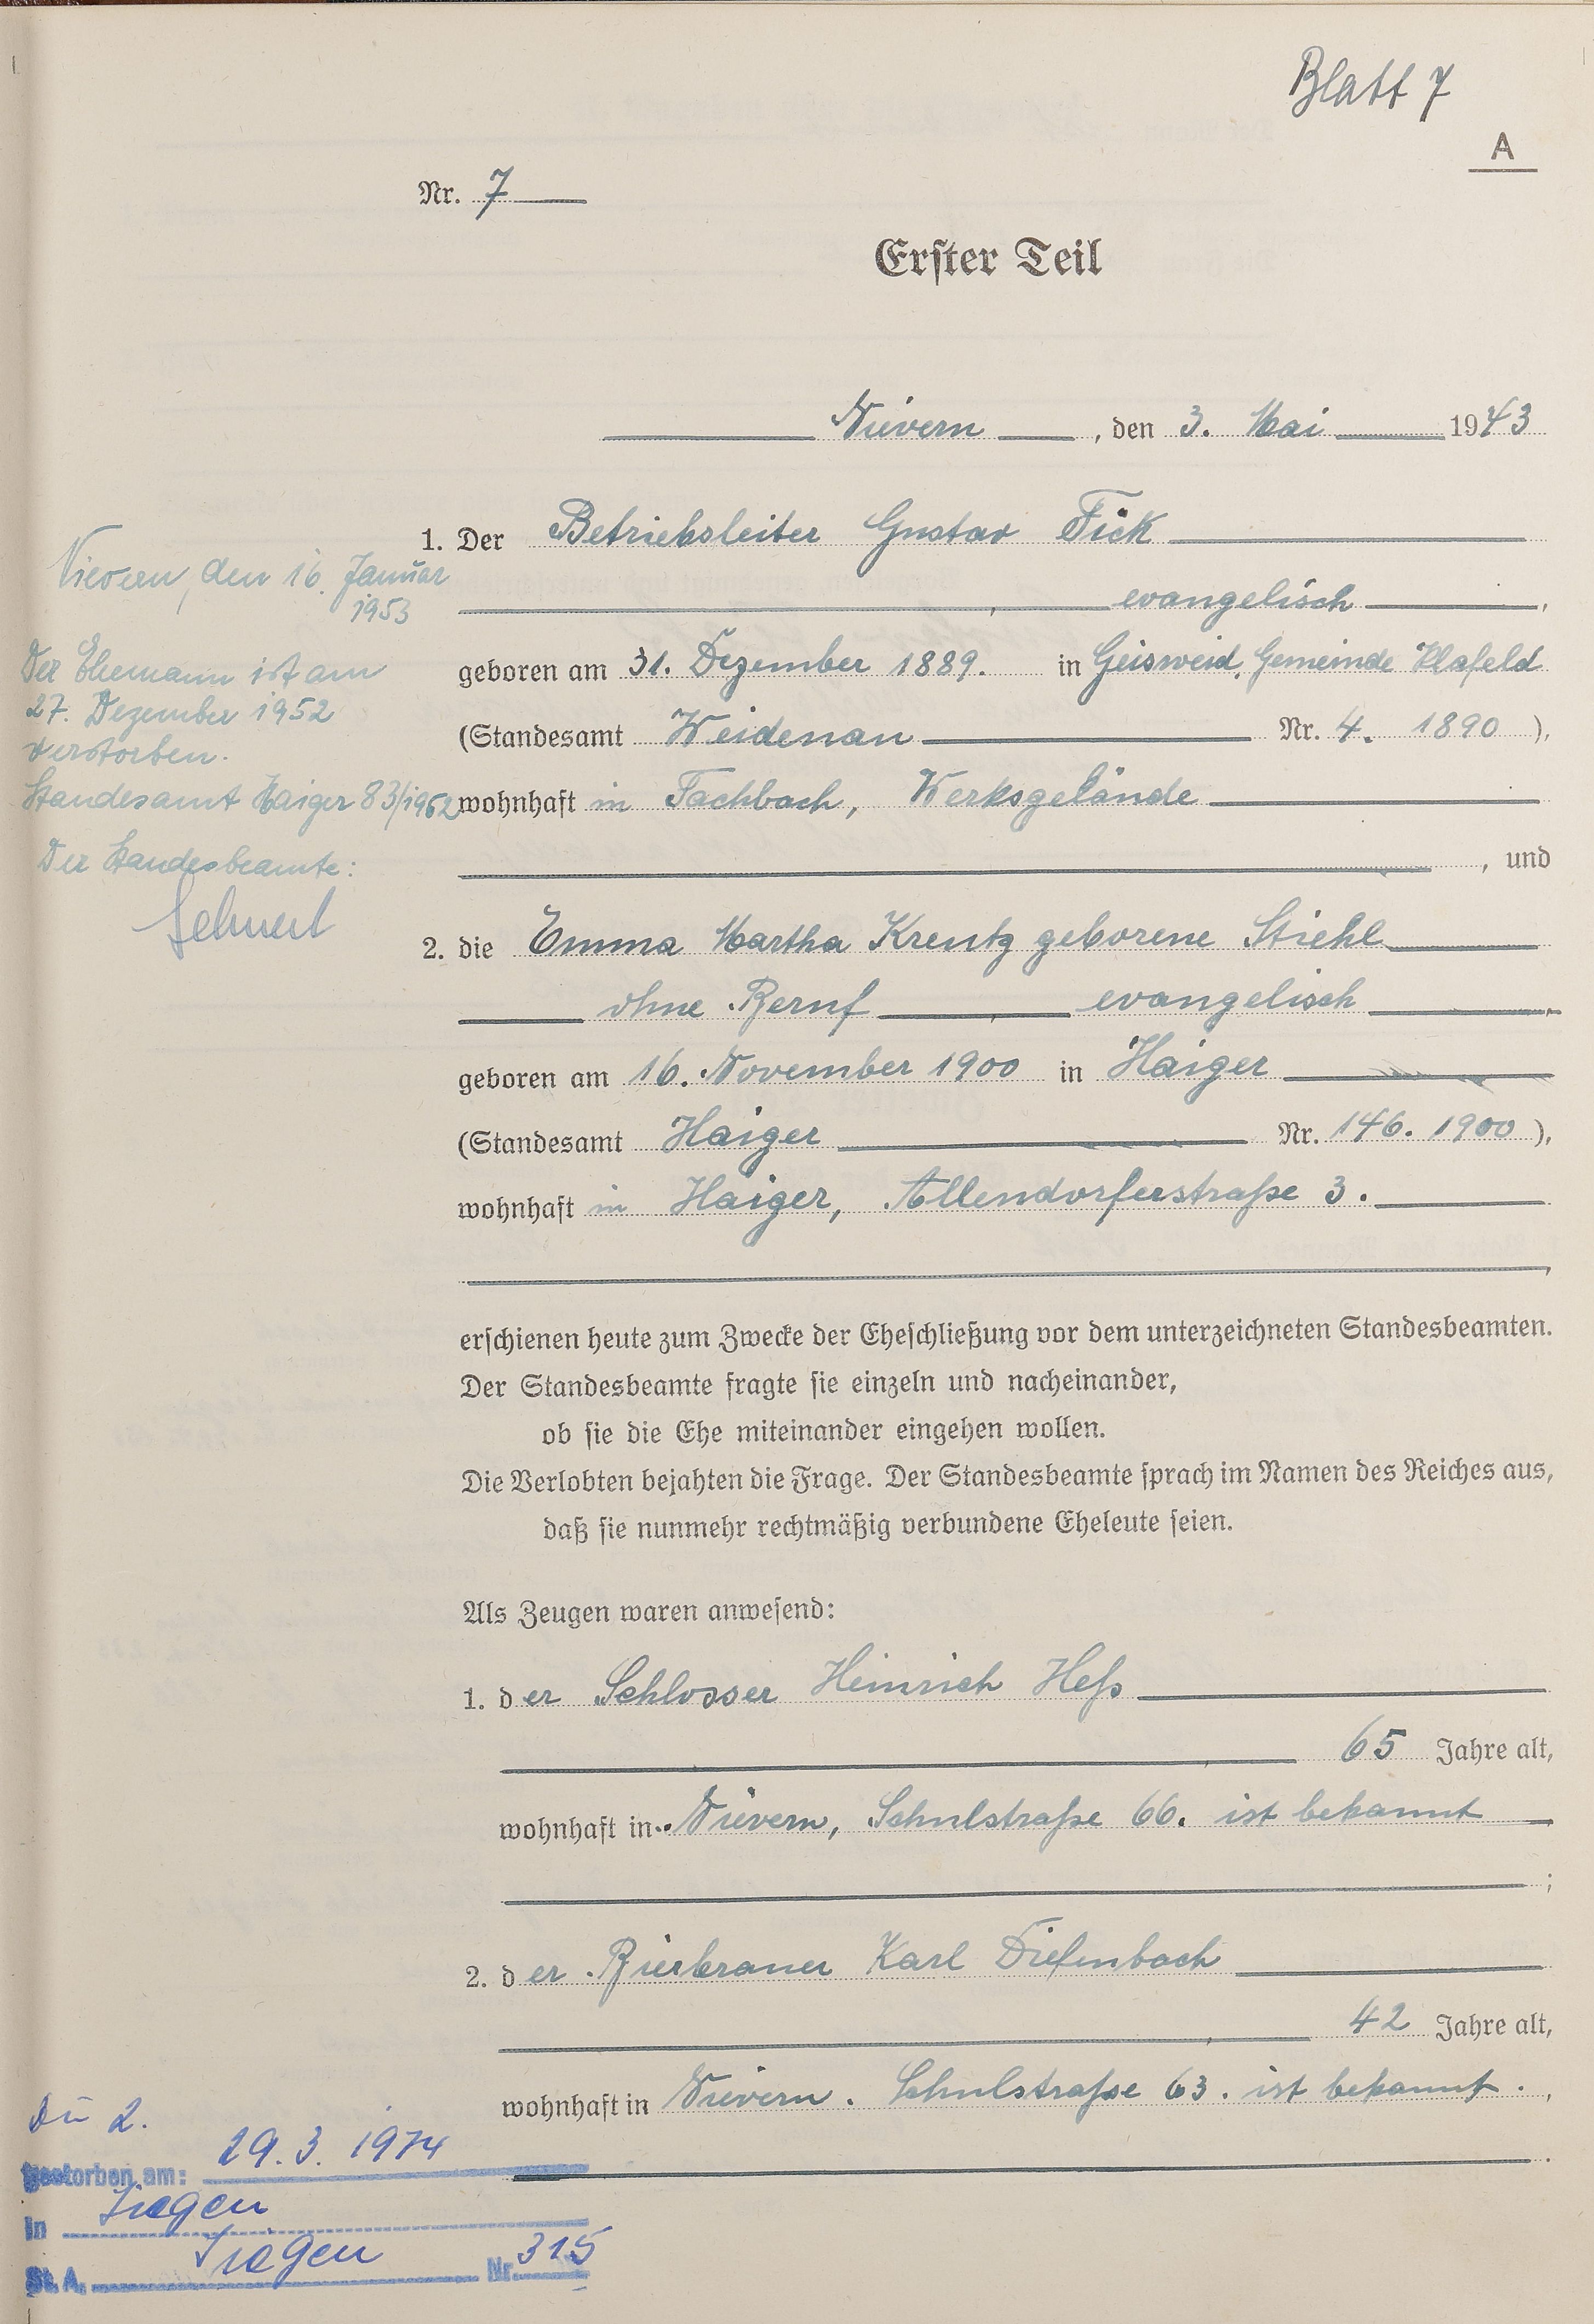 Blatt 7
A
Nr. 7
Erster Teil
Nievern, den 3. Mai 1943
1. Der Betriebsleiter Gustav Fick
evangelisch,
geboren am 31. Dezember 1889. in Geisweid, Gemeinde Klafeld
(Standesamt Weidenau Nr. 4. 1890),
wohnhaft in Fachbach, Werksgelände
, und
2. die Emma Martha Kreutz geborene Stiehl
ohne Beruf, evangelisch
geboren am 16. November 1900 in Haiger
(Standesamt Haiger Nr. 146. 1900),
wohnhaft in Haiger, Allendorferstraße 3.
erschienen heute zum Zwecke der Eheschließung vor dem unterzeichneten Standesbeamten.
Der Standesbeamte fragte sie einzeln und nacheinander,
ob sie die Ehe miteinander eingehen wollen.
Die Verlobten bejahten die Frage. Der Standesbeamte sprach im Namen des Reiches aus,
daß sie nunmehr rechtmäßig verbundene Eheleute seien.
Als Zeugen waren anwesend:
1. der Schlosser Heinrich Heß
65 Jahre alt,
wohnhaft in Nievern, Schulstraße 66. ist bekannt
;
2. der Bierbrauer Karl Diefenbach
42 Jahre alt,
wohnhaft in Nievern. Schulstraße 63. ist bekannt.,
Nievern, den 16. Januar
1953
Der Ehemann ist am
27. Dezember 1952
verstorben.
Standesamt Haiger 83/1952
Der Standesbeamte:
Zu 2.
gestorben am: 29.3.1974
in Siegen
St. A. Siegen Nr. 315